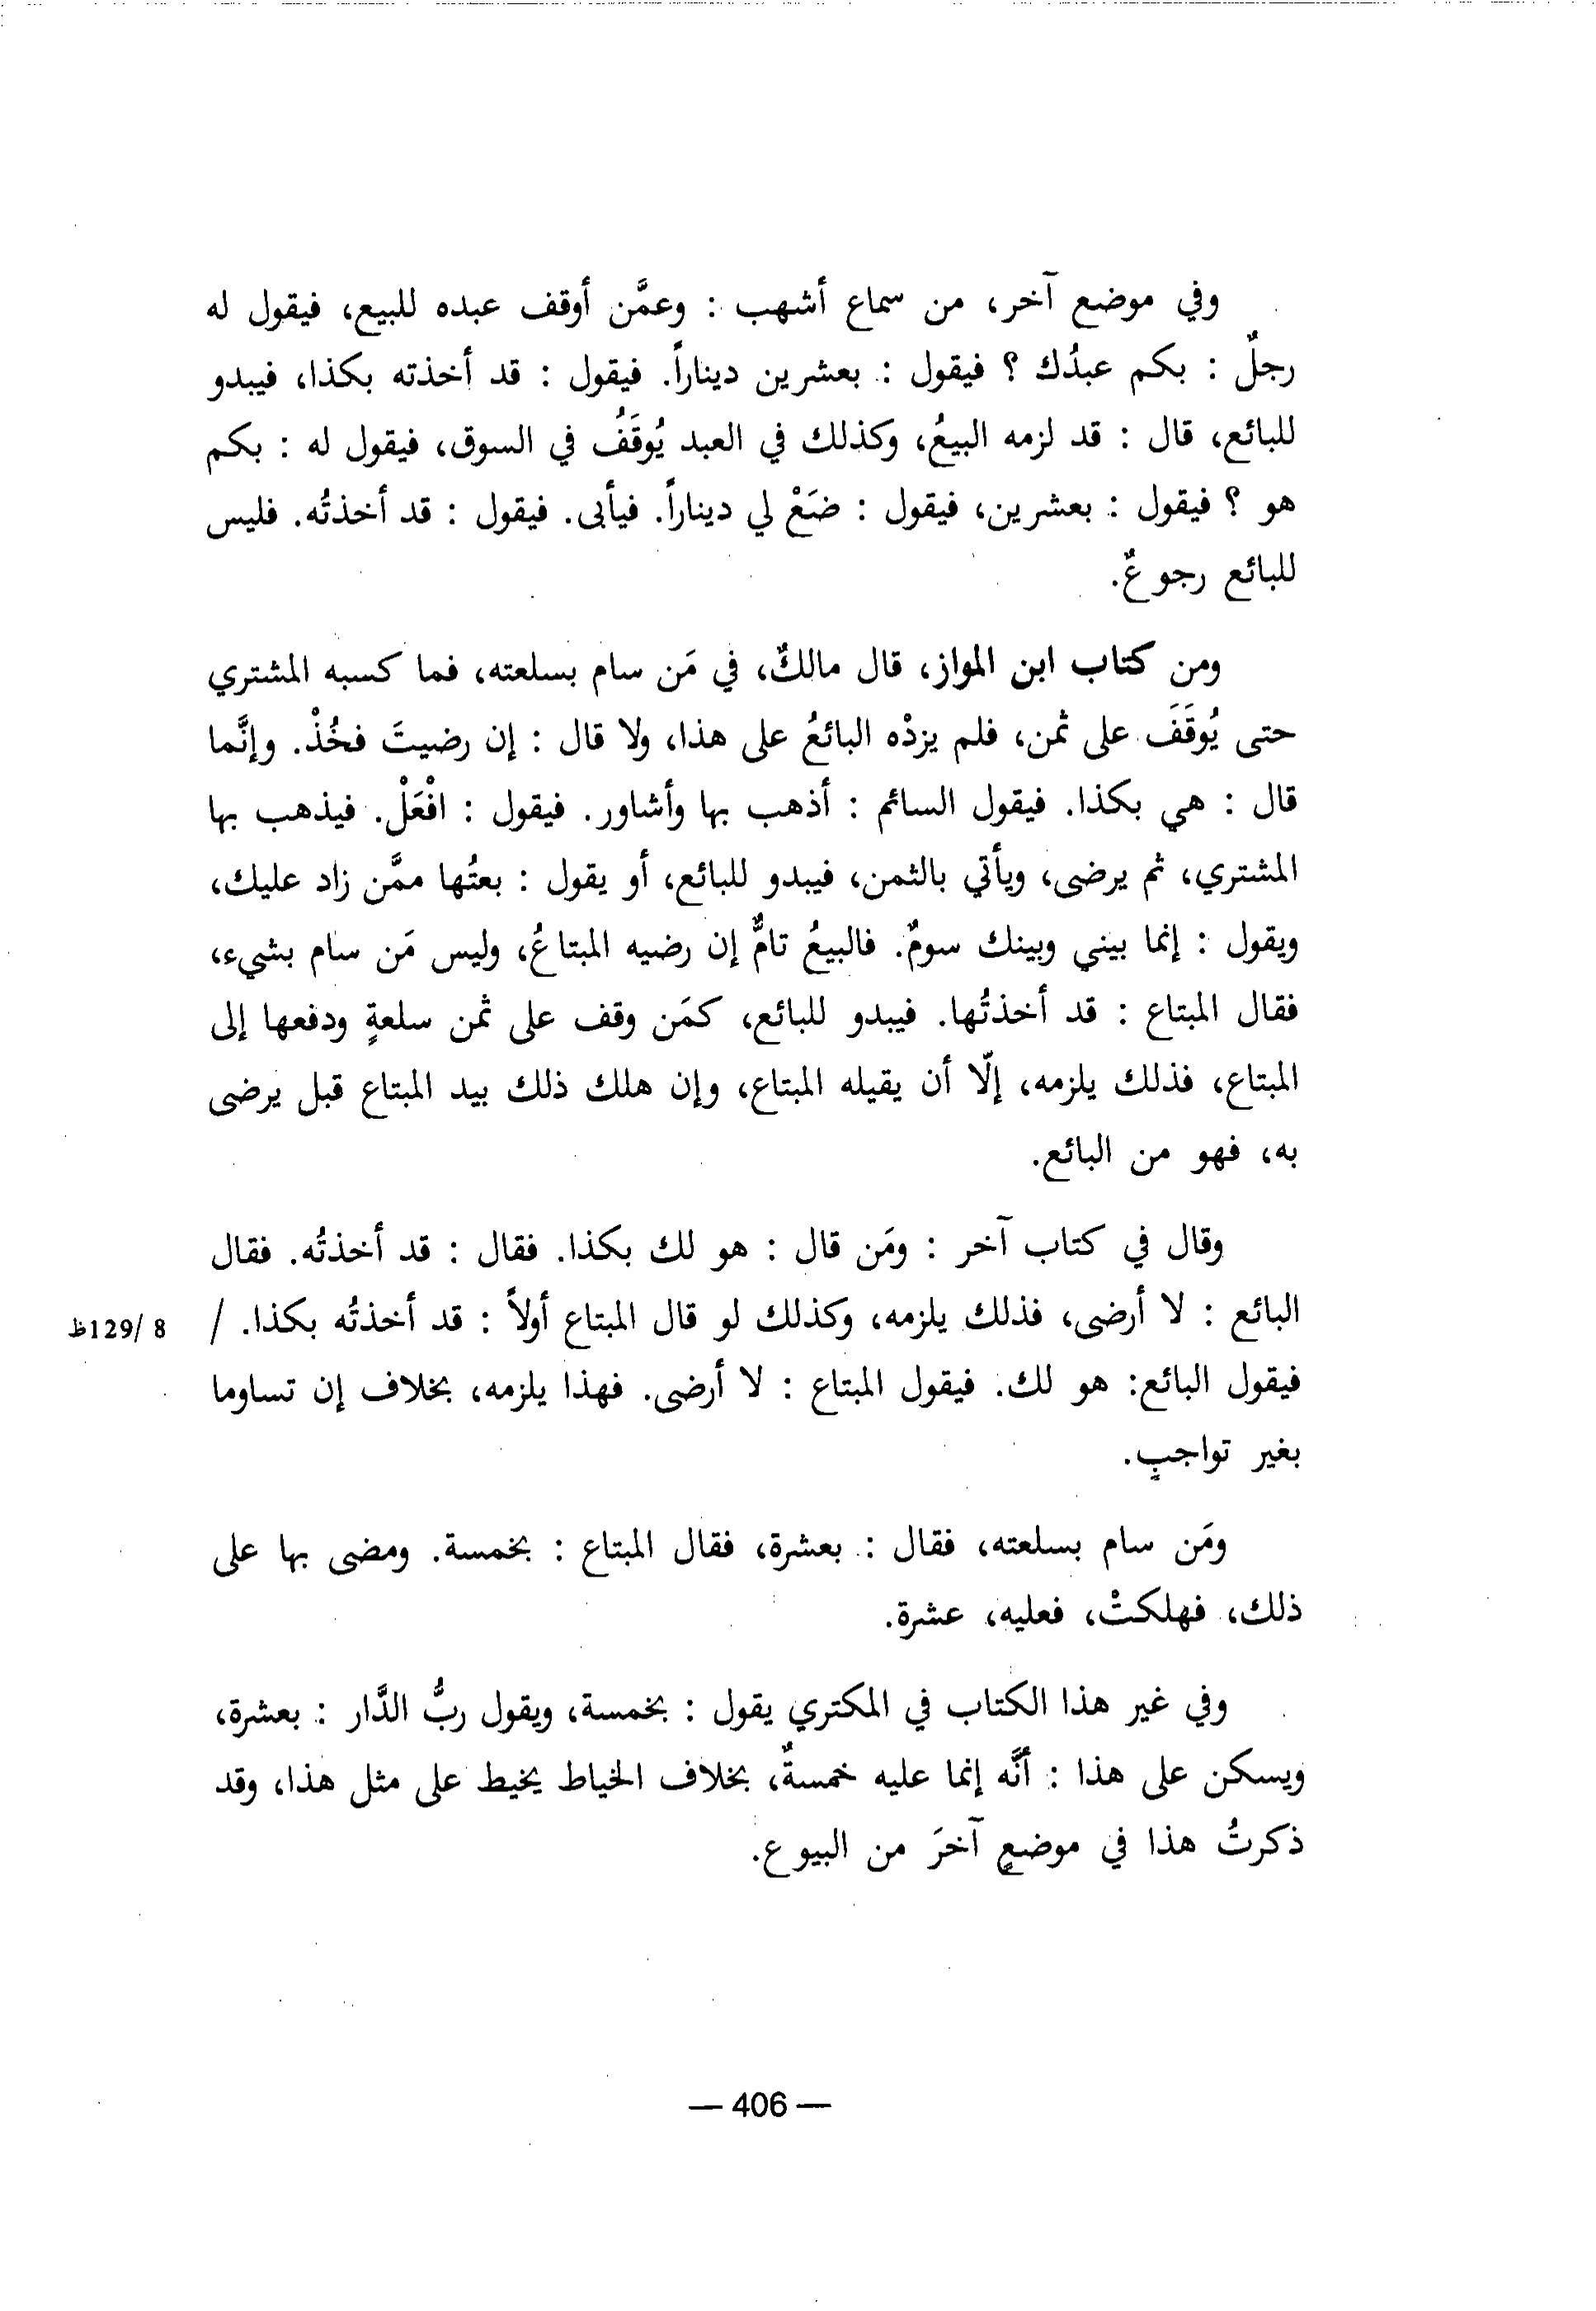 وفي موضع آخر، من سماع أشهب : وعمَّن أوقف عبده للبيع، فيقول له
رجلٌ : بكم عبدُك ؟ فيقول : بعشرين ديناراً. فيقول : قد أخذته بكذا، فيبدو
للبائع، قال : قد لزمه البيعُ، وكذلك في العبد يُوقَفُ في السوق، فيقول له : بكم
هو ؟ فيقول : بعشرين، فيقول : ضَعْ لي ديناراً. فيأبى. فيقول : قد أخذتُه. فليس
للبائع رجوعٌ.
ومن كتاب ابن المواز، قال مالكٌ، في مَن سام بسلعته، فما كسبه المشتري
حتى يُوقَفَ على ثمن، فلم يزدْه البائعُ على هذا، ولا قال : إن رضيتَ فخُذْ. وإنَّما
قال : هي بكذا. فيقول السائم : أذهب بها وأشاور. فيقول : افْعَلْ. فيذهب بها
المشتري، ثم يرضى، ويأتي بالثمن، فيبدو للبائع، أو يقول : بعتُها ممَّن زاد عليك،
ويقول : إنما بيني وبينك سومٌ. فالبيعُ تامٌّ إن رضيه المبتاعُ، وليس مَن سام بشيء،
فقال المبتاع : قد أخذتُها. فيبدو للبائع، كمَن وقف على ثمن سلعةٍ ودفعها إلى
المبتاع، فذلك يلزمه، إلّا أن يقيله المبتاع، وإن هلك ذلك بيد المبتاع قبل يرضى
به، فهو من البائع.
وقال في كتاب آخر : ومَن قال : هو لك بكذا. فقال : قد أخذتُه. فقال
البائع : لا أرضى، فذلك يلزمه، وكذلك لو قال المبتاع أولاً : قد أخذتُه بكذا. / 8 /129ظ
فيقول البائع: هو لك. فيقول المبتاع : لا أرضى. فهذا يلزمه، بخلاف إن تساوما
بغير تواجبٍ.
ومَن سام بسلعته، فقال : بعشرة، فقال المبتاع : بخمسة. ومضى بها على
ذلك، فهلكتْ، فعليه، عشرة.
وفي غير هذا الكتاب في المكتري يقول : بخمسة، ويقول ربُّ الدَّار : بعشرة،
ويسكن على هذا : أنَّه إنما عليه خمسةٌ، بخلاف الخياط يخيط على مثل هذا، وقد
ذكرتُ هذا في موضعٍ آخرَ من البيوع.
— 406 —